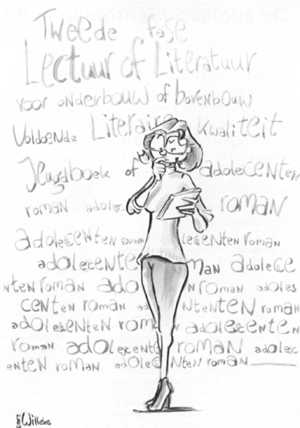 Tweede fase
Lectuur of Literatuur
voor onderbouw of bovenbouw
Voldoende Literaire kwaliteit
Jeugdboek of adolecenten
roman adolec roman
adolecenten roman adolecenten roman
adolecenten roman adolece
nten roman adolecenten roman adoles
centen roman adolecententen roman
adolescenten roman adolecenten
roman adolecenten roman adolec
enten roman adolecenten roman
Willeke